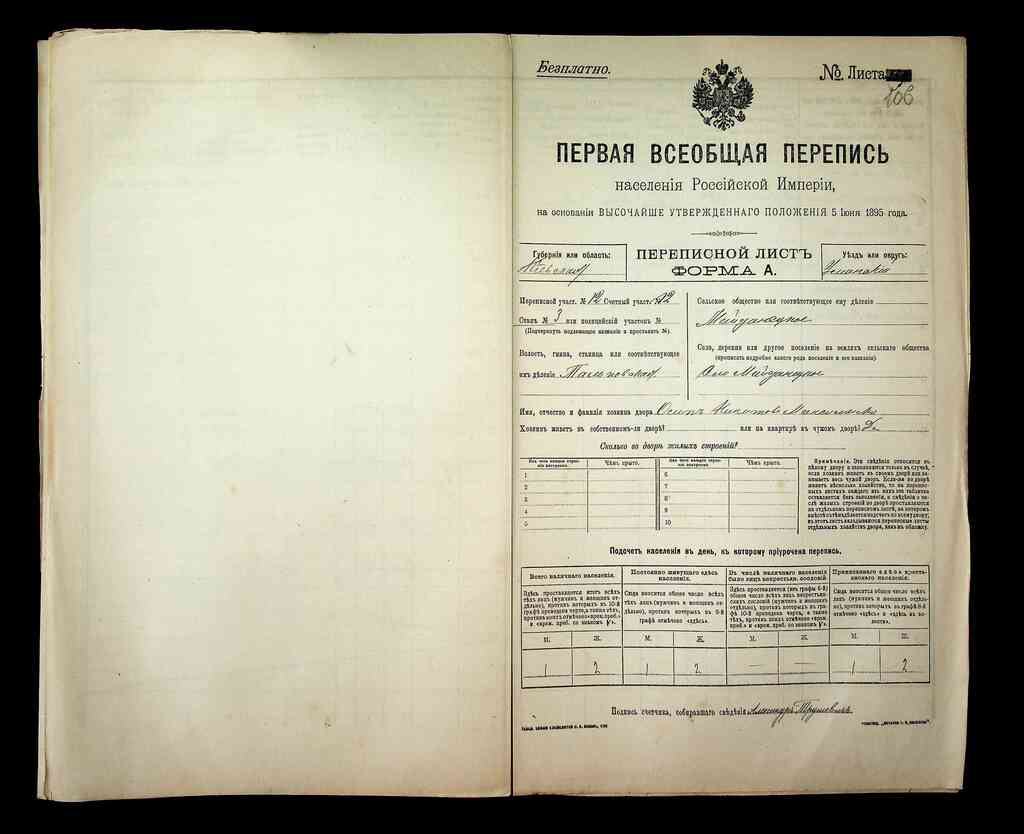 Безплатно.
№ Листа
106
ПЕРВАЯ ВСЕОБЩАЯ ПЕРЕПИСЬ
населенія Россійской Имперіи,
на основаніи ВЫСОЧАЙШЕ УТВЕРЖДЕННАГО ПОЛОЖЕНІЯ 5 Іюня 1895 года.
Губернія или область:
Кіевская
ПЕРЕПИСНОЙ ЛИСТЪ
ФОРМА А.
Уѣздъ или округъ:
Уманскій
Переписной участ. № 12 Счетный участ. № 12
Станъ № 3 или полицейскій участокъ №
(Подчеркнуть подлежащее названіе и проставить №).
Волость, гмина, станица или соотвѣтствующее
имъ дѣленіе Тальновская
Сельское общество или соотвѣтствующее ему дѣленіе
Майданецкое
Село, деревня или другое поселеніе на земляхъ сельскаго общества
(прописать подробнее какого рода поселеніе и его названіе)
Село Майданецкое
Имя, отчество и фамилія хозяина двора Осипъ
Хозяинъ живетъ въ собственномъ-ли дворѣ? или на квартирѣ въ чужомъ дворѣ? Да
Сколько во дворѣ жилыхъ строеній?
Изъ чего каждое строеніе построено. Чѣмъ крыто. Изъ чего каждое строеніе построено. Чѣмъ крыто.
1 6
2 7
3 8
4 9
5 10
Примѣчаніе. Эти свѣдѣнія относятся къ
цѣлому двору и заполняются только въ случаѣ,
если хозяинъ живетъ въ своемъ дворѣ или занимаетъ
весь чужой дворъ. Если-же во дворѣ
живетъ нѣсколько хозяйствъ, то на переписныхъ
листахъ каждаго изъ нихъ эта табличка
оставляется безъ заполненія, а свѣдѣнія о числѣ
жилыхъ строеній во дворѣ проставляются
на отдѣльномъ переписномъ листѣ, на которомъ
вмѣстѣ съ тѣмъ дѣлается подсчетъ по всему двору;
въ этотъ листъ вкладываются переписные листы
отдѣльныхъ хозяйствъ двора, какъ въ обложку.
Подсчетъ населенія въ день, къ которому пріурочена перепись.
Всего наличнаго населенія.
Здѣсь проставляется итогъ всѣхъ
тѣхъ лицъ (мужчинъ и женщинъ отдѣльно),
противъ которыхъ въ 10-й
графѣ проведена черта, а также тѣхъ,
противъ коихъ отмѣчено «врем. преб.»
М. Ж.
1 2
Постоянно живущаго здѣсь
населенія.
Сюда вносится общее число всѣхъ
тѣхъ лицъ (мужчинъ и женщинъ отдѣльно),
противъ которыхъ въ 9-й
графѣ отмѣчено «здѣсь».
М. Ж.
1 2
Въ числѣ наличнаго населенія
было лицъ некрестьян. сословій
М. Ж.
— —
Приписаннаго здѣсь крестьянскаго
населенія.
Сюда вносится общее число всѣхъ
тѣхъ лицъ (мужчинъ и женщинъ отдѣльно),
противъ которыхъ въ графѣ 8-й
отмѣчено «здѣсь» и «здѣсь въ волости».
М. Ж.
1 2
Подпись счетчика, собиравшаго свѣдѣнія